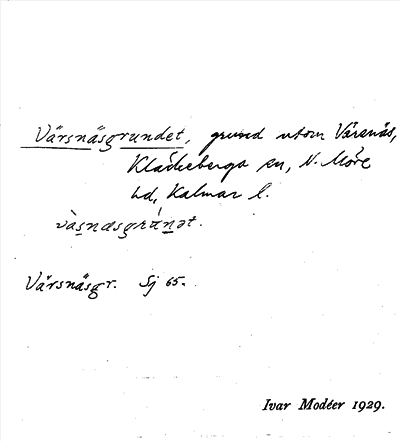 Värsnäsgrundet, grund utom Värsnäs,
Kläckeberga sn, N. Möre
hd, Kalmar l.
Värsnäsgr. Sj 65.
Ivar Modéer 1929.